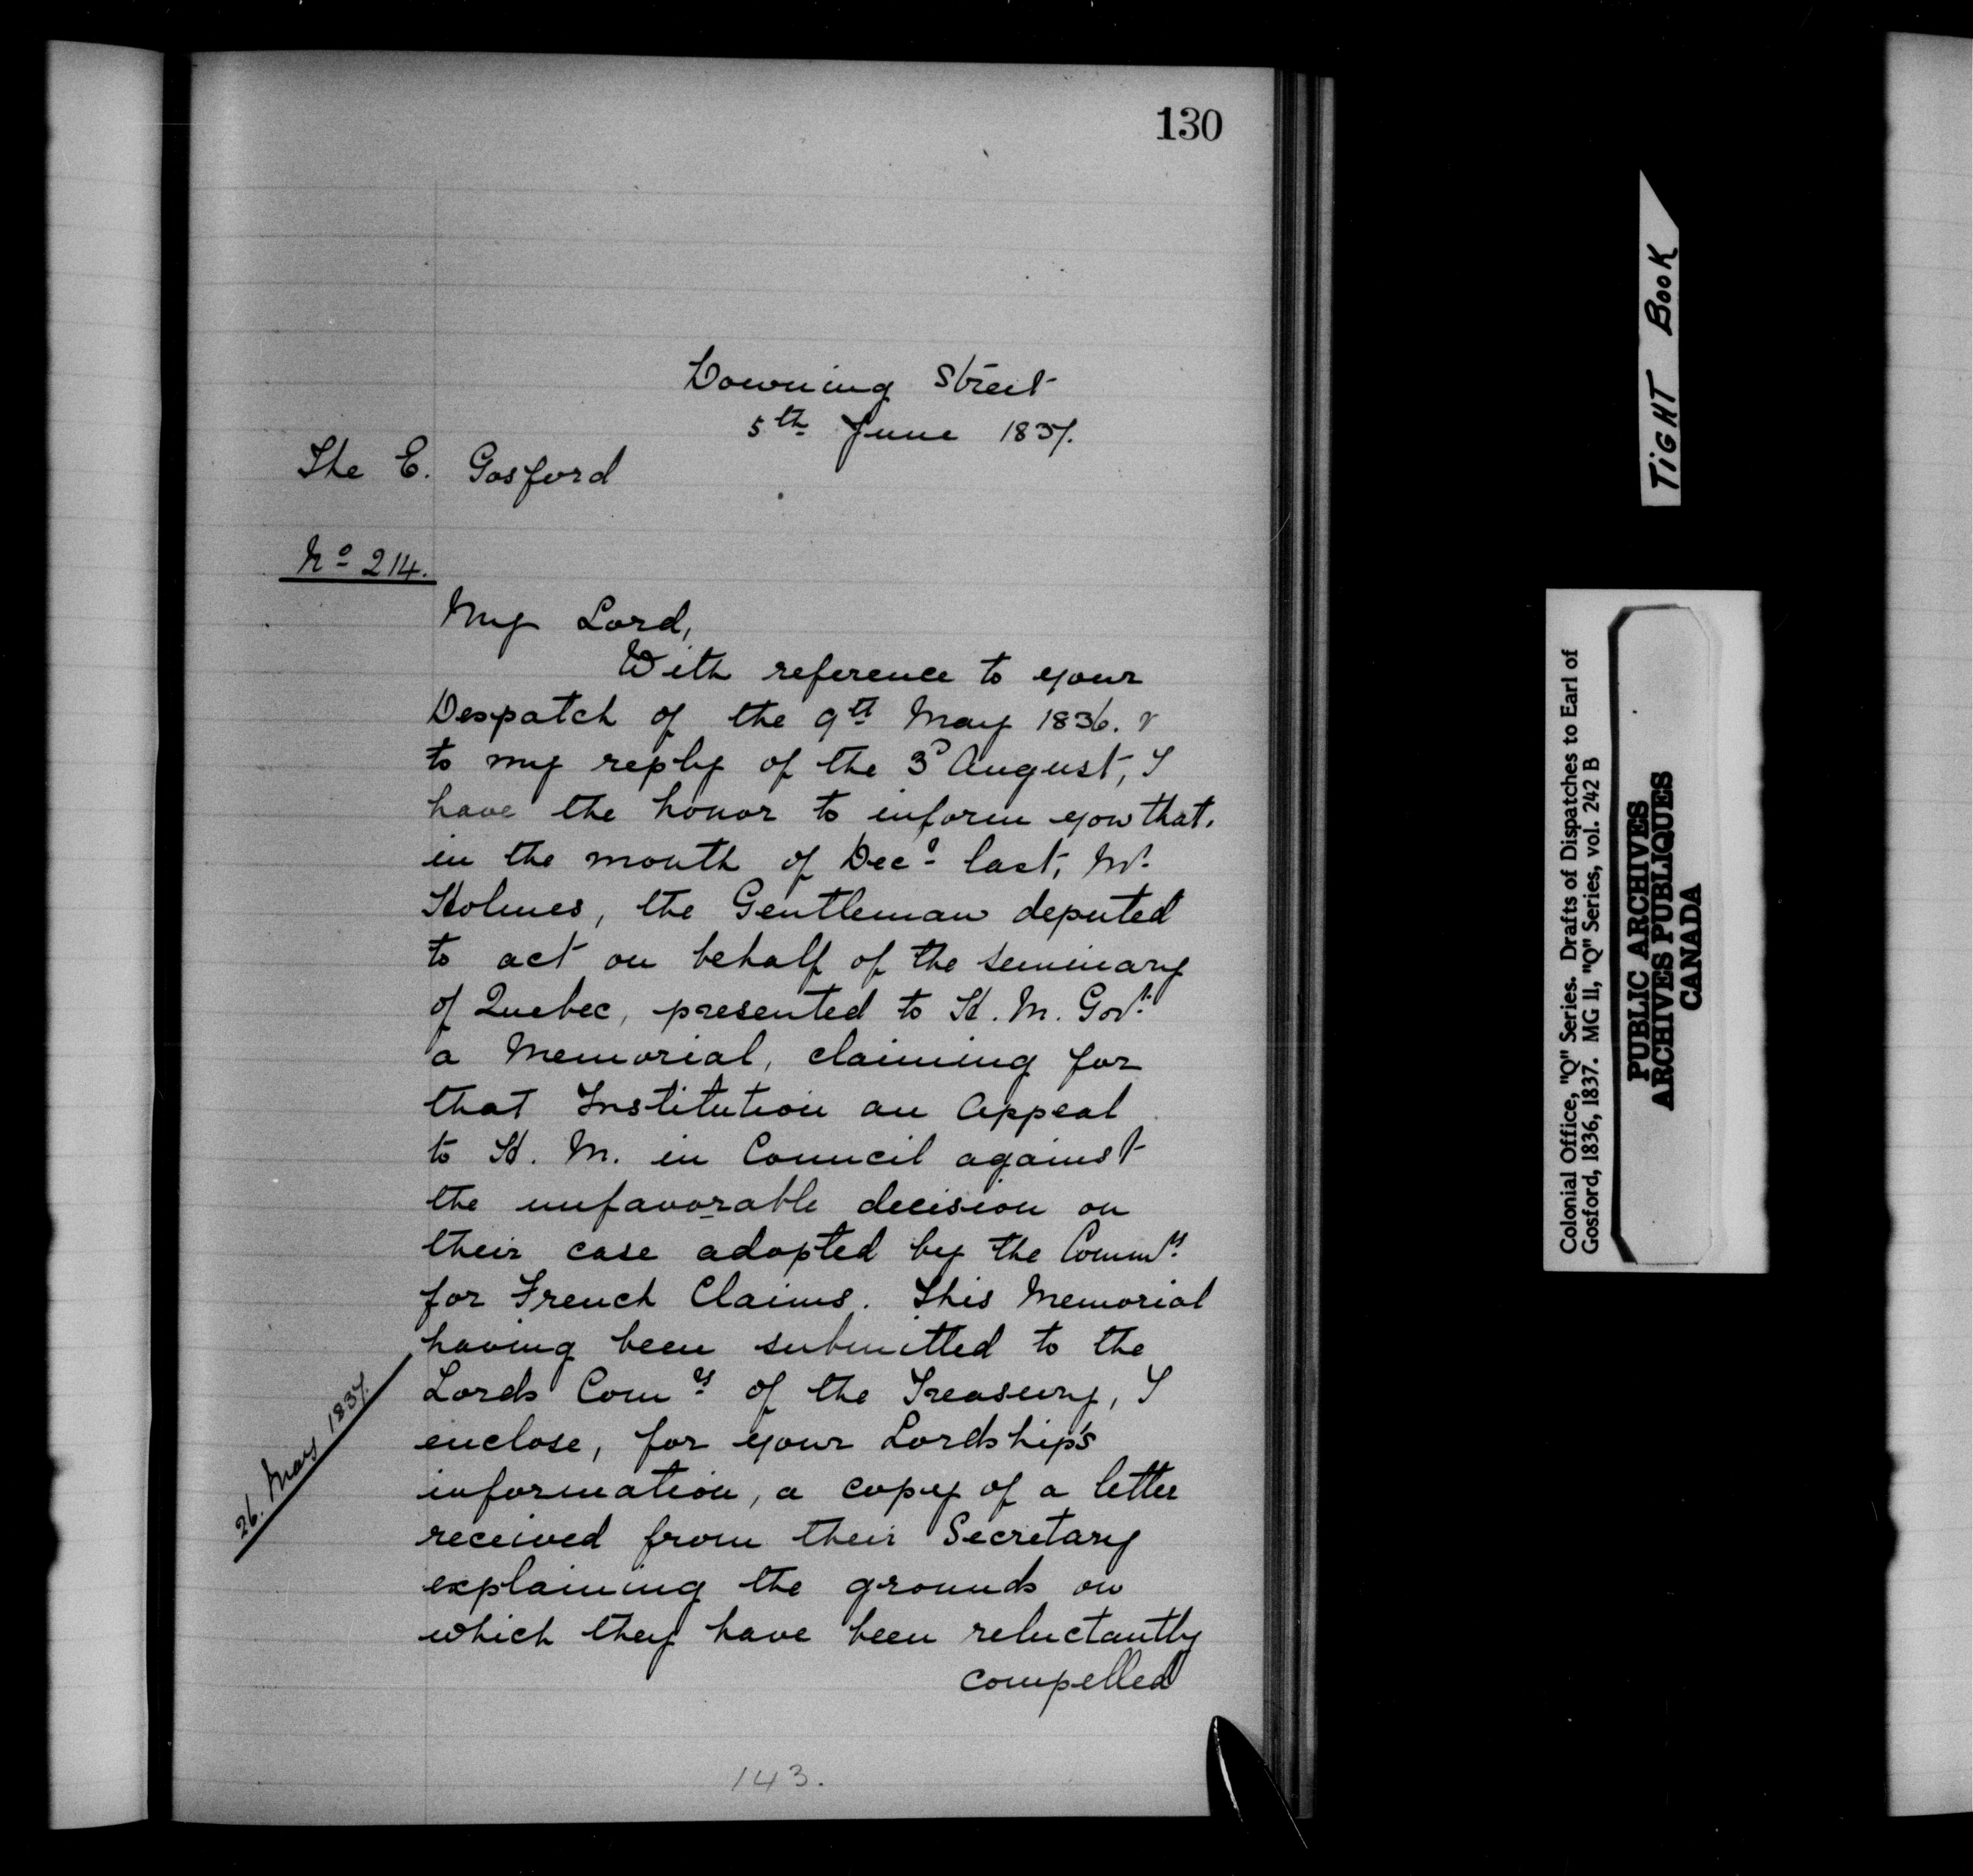 130
Downing Street
5th June 1837.
The E. Gosford
No 214.
My Lord,
With reference to your
Despatch of the 9th May 1836. &
to my reply of the 3d August, I
have the honor to inform you that,
in the month of Decr last, Mr.
Holmes, the Gentleman deputed
to act on behalf of the Seminary
of Quebec, presented to H. M. Govt.
a Memorial, claiming for
that Institution an Appeal
to H. M. in Council against
the unfavorable decision on
their case adopted by the Commrs.
for French Claims. This Memorial
having been submitted to the
Lords Comrs of the Treasury, I
enclose, for your Lordship's
information, a copy of a letter
received from their Secretary
explaining the grounds on
which they have been reluctantly
compelled
26. May 1837.
143.
TIGHT BOOK
Colonial Office, "Q" Series. Drafts of Dispatches to Earl of
Gosford, 1836, 1837. MG 11, "Q" Series, vol. 242 B
PUBLIC ARCHIVES
ARCHIVES PUBLIQUES
CANADA